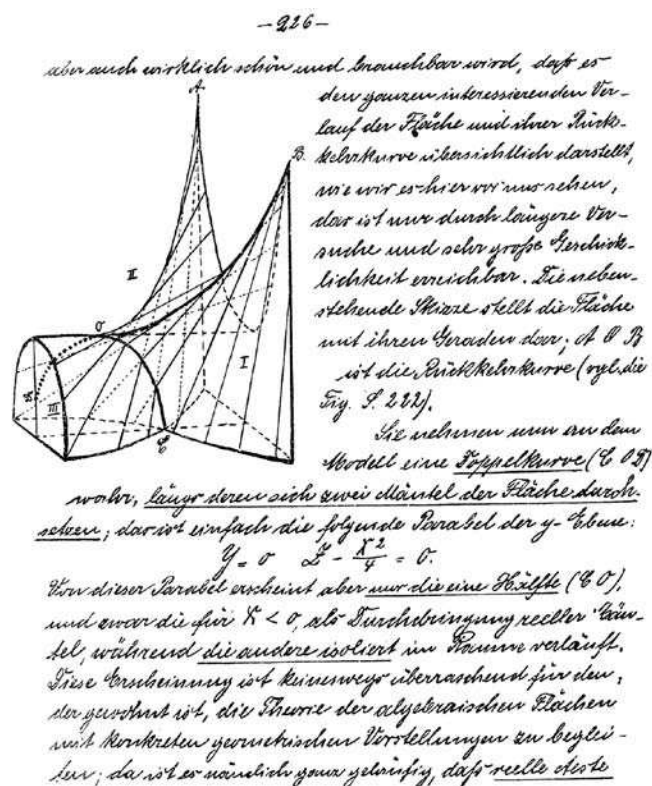 -226-
aber auch wirklich schön und brauchbar wird, daß es
den ganzen interessierenden Ver-
lauf der Fläche und ihrer Rück-
kehrkurve übersichtlich darstellt,
wie wir es hier vor uns sehen,
das ist nur durch längere Ver-
suche und sehr große Geschick-
lichkeit erreichbar. Die neben-
stehende Skizze stellt die Fläche
mit ihren Geraden dar; A O B
ist die Rückkehrkurve (vgl. die
Fig. S. 222).
Sie nehmen nun an dem
Modell eine Doppelkurve (C O D)
wahr, längs deren sich zwei Mäntel der Fläche durch-
setzen; das ist einfach die folgende Parabel der y-Ebene:
Y = 0 Z - X²/4 = 0.
Von dieser Parabel erscheint aber nur die eine Hälfte (C O),
und zwar die für X < 0, als Durchdringung reeller Män-
tel, während die andere isoliert im Raume verläuft.
Diese Erscheinung ist keineswegs überraschend für den,
der gewohnt ist, die Theorie der algebraischen Flächen
mit konkreten geometrischen Vorstellungen zu beglei-
ten; da ist es nämlich ganz geläufig, daß reelle Aeste
A
B
II
O
I
III